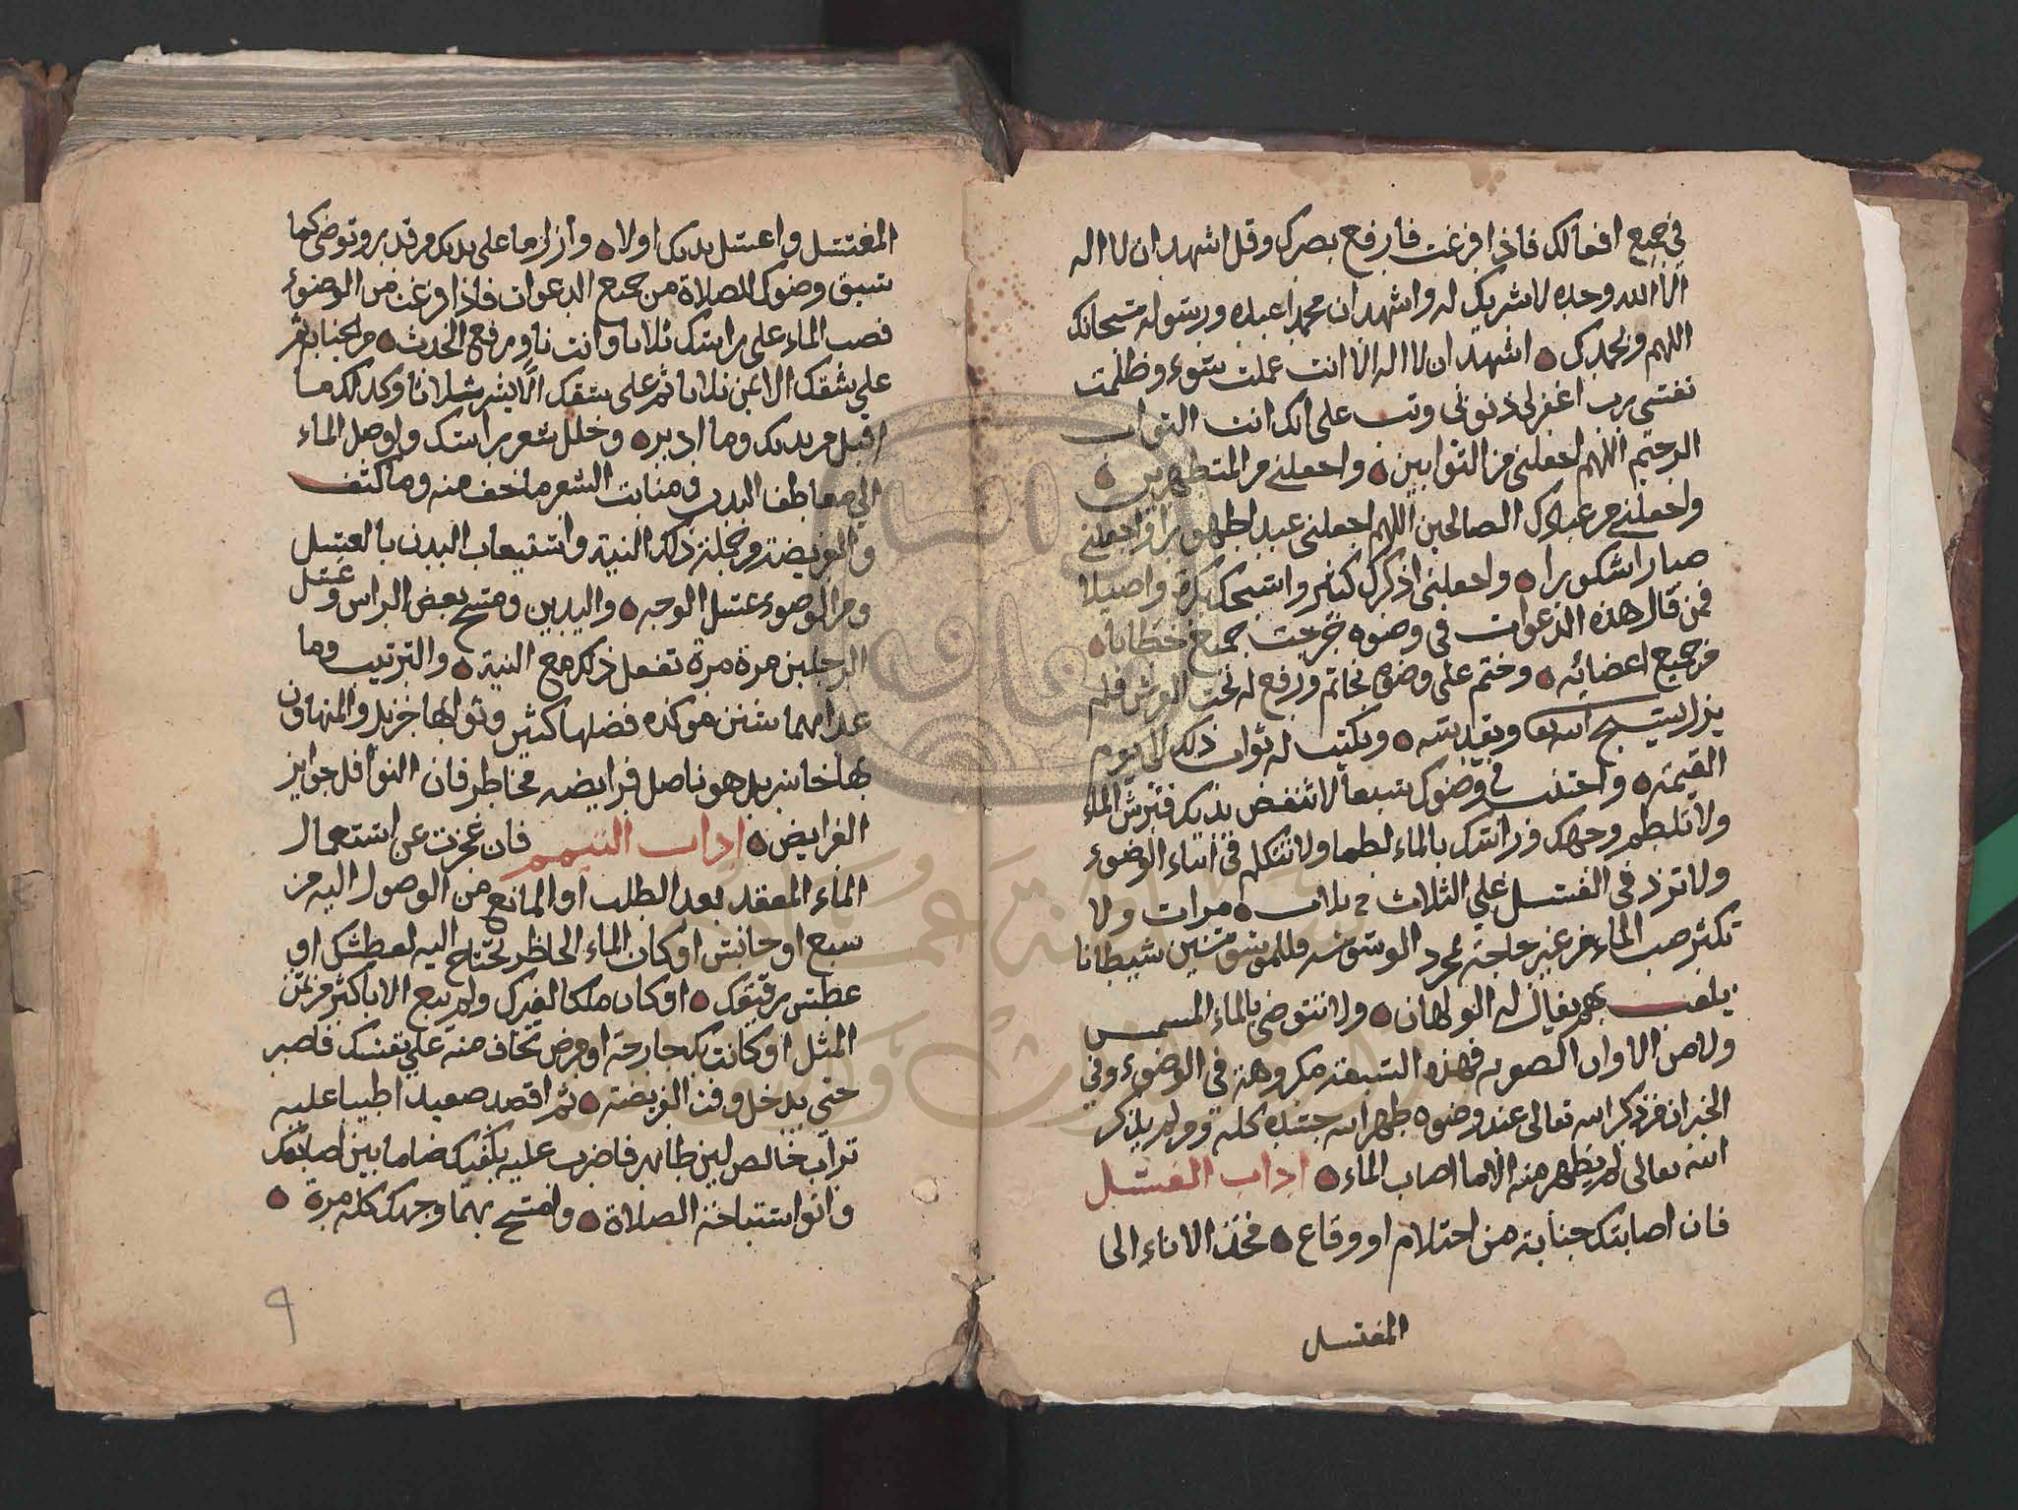 في جميع افعالك فاذا فرغت فارفع بصرك وقل اشهد ان لا اله
الا الله وحده لا شريك له واشهد ان محمدا عبده ورسوله سبحانك
اللهم وبحمدك اشهد ان لا اله الا انت عملت سوء وظلمت
نفسي رب اغفر لي ذنوبي وتب علي انك انت التواب
الرحيم اللهم اجعلني من التوابين واجعلني من المتطهرين
واجعلني من عبادك الصالحين اللهم اجعلني عبدا طهورا واجعلني
صبارا شكورا واجعلني اذكرك كثيرا واسبحك بكرة واصيلا
فمن قال هذه الدعوات في وضوه خرجت جميع خطاياه
من جميع اعضائه وختم على وضوه بخاتم ورفع له تحت العرش فلم
يزل يسبح الله تعا ويقدسه ويكتب له ثواب ذلك الى يوم
القيمة واجتنب في وضوك سبعا لا تنفض يديك فترش الماء
ولا تلطم وجهك وراسك بالماء لطما ولا تتكلم في اثناء الوضوء
ولا تزد في الغسل على الثلاث مرات ولا
تكثر صب الماء من غير حاجة لمجرد الوسوسة فللموسوسين شيطانا
يلعب بهم يقال له الولهان ولا تتوضى بالماء المشمس
ولا من الاواني الصفرية فهذه السبعة مكروهة في الوضوء وفي
الخبر ان من ذكر الله تعالى عند وضوه طهر الله جسده كله ومن لم يذكر
الله تعالى لم يطهر منه الا ما اصاب الماء اداب الغسل
فان اصابتك جنابة من احتلام او وقاع فخذ الاناء الى
المغتسل
المغتسل واغسل يديك اولا وازل ما على بدنك من قذر وتوضى كما
سبق وضوك للصلاة مع جميع الدعوات فاذا فرغت من الوضوء
فصب الماء على راسك ثلاثا وانت ناو رفع الحدث من الجنابة ثم
على شقك الايمن ثلاثا ثم على شقك الايسر ثلاثا وكذلك ما
اقبل من بدنك وما ادبر وخلل شعر راسك واوصل الماء
الى معاطف البدن ومنابت الشعر ما خف منه وما كثف
والفريضة من جملة ذلك النية واستيعاب البدن بالغسل
ومن الوضوء غسل الوجه واليدين ومسح بعض الراس وغسل
الرجلين مرة مرة تفعل ذلك مع النية والترتيب وما
عداهما سنن موكده فضلها كثير وثوابها جزيل والمتهاون
بها خاسر بل هو باصل فرايضه مخاطر فان النوافل جوابر
الفرايض اداب التيمم فان عجزت عن استعمال
الماء لفقده بعد الطلب او المانع من الوصول اليه من
سبع او حابس او كان الماء الحاظر تحتاج اليه لعطشك او
عطش رفيقك او كان ملكا لغيرك ولم يبع الا باكثر من ثمن
المثل او كانت بك جارحة او مرض تخاف منه على نفسك فاصبر
حتى يدخل وقت الفريضة ثم اقصد صعيدا طيبا عليه
تراب خالص لين طاهر فاضرب عليه بكفيك ضاما بين اصابعك
وانو استباحة الصلاة وامسح بهما وجهك كله مرة
٩